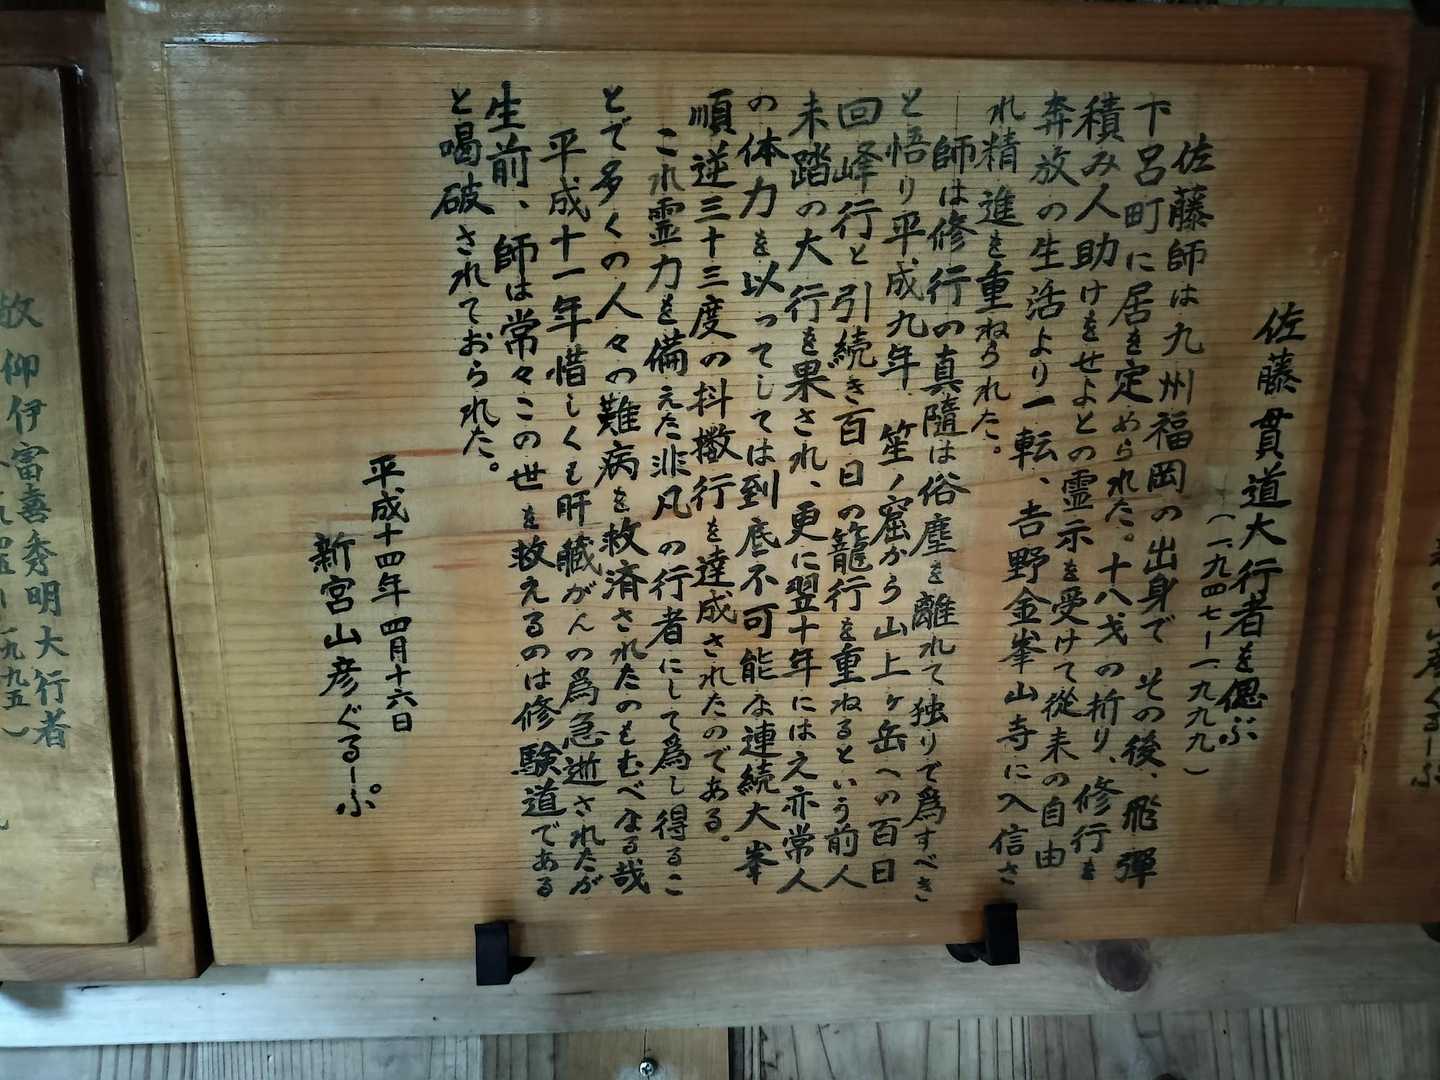 佐藤貫道大行者を偲ぶ
(一九四七ー一九九九)
佐藤師は九州福岡の出身で その後、飛弾
下呂町に居を定められた。十八戈の折り、修行を
積み人助けをせよとの霊示を受けて従来の自由
奔放の生活より一転、吉野金峯山寺に入信さ
れ精進を重ねられた。
師は修行の真隨は俗塵を離れて独りで為すべき
と悟り平成九年、笙ノ窟から山上ヶ岳への百日
回峰行と引続き百日の籠行を重ねるという前人
未踏の大行を果され、更に翌十年にはえ亦常人
の体力を以ってしては到底不可能な連続大峯
順逆三十三度の抖擻行を達成されたのである。
これ霊力を備えた非凡の行者にして為し得るこ
とで多くの人々の難病を救済されたのもむべなる哉
平成十一年惜しくも肝臓がんの為急逝されたが
生前、師は常々この世を救えるのは修験道である
と喝破されておられた。
平成十四年四月十六日
新宮山彦ぐるーぷ
敬仰伊富喜秀明大行者